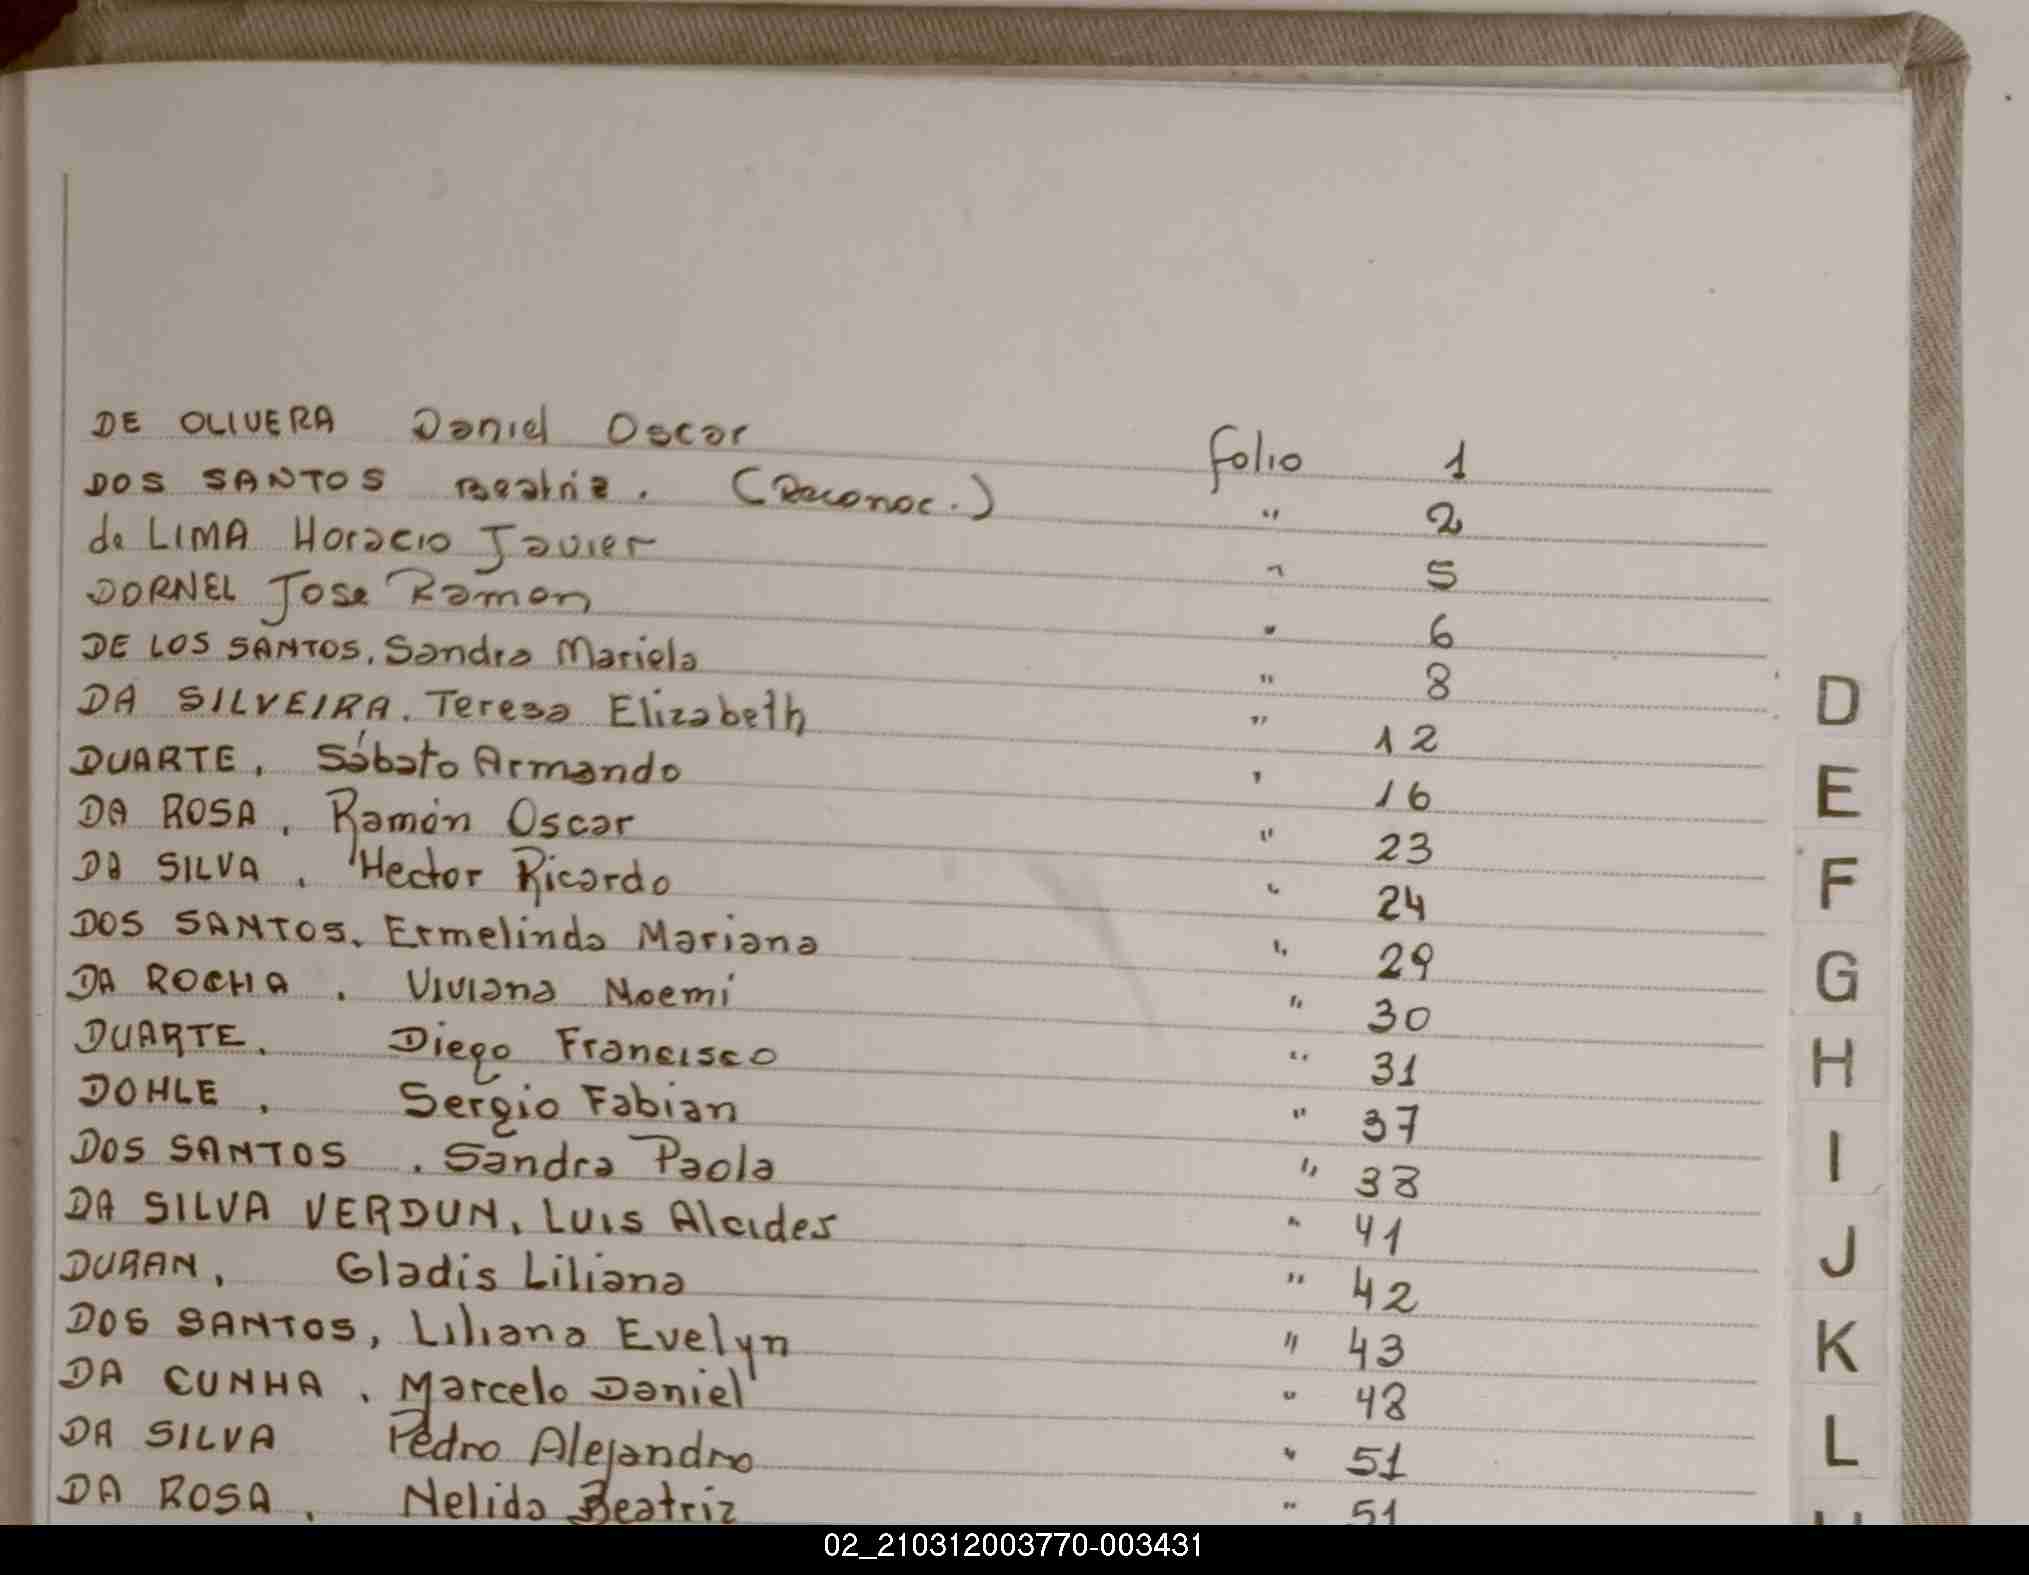 DE OLIVERA Daniel Oscar folio 1
DOS SANTOS Beatriz. (Reconoc.) " 2
de LIMA Horacio Javier " 5
DORNEL Jose Ramon " 6
DE LOS SANTOS, Sandra Mariela " 8
DA SILVEIRA, Teresa Elizabeth " 12
DUARTE, Sábato Armando " 16
DA ROSA, Ramón Oscar " 23
DA SILVA, Hector Ricardo " 24
DOS SANTOS, Ermelinda Mariana " 29
DA ROCHA, Viviana Noemi " 30
DUARTE, Diego Francisco " 31
DOHLE, Sergio Fabian " 37
DOS SANTOS, Sandra Paola " 38
DA SILVA VERDUN, Luis Alcides " 41
DURAN, Gladis Liliana " 42
DOS SANTOS, Liliana Evelyn " 43
DA CUNHA, Marcelo Daniel " 48
DA SILVA Pedro Alejandro " 51
DA ROSA, Nelida Beatriz " 51
D
E
F
G
H
I
J
K
L
02_210312003770-003431